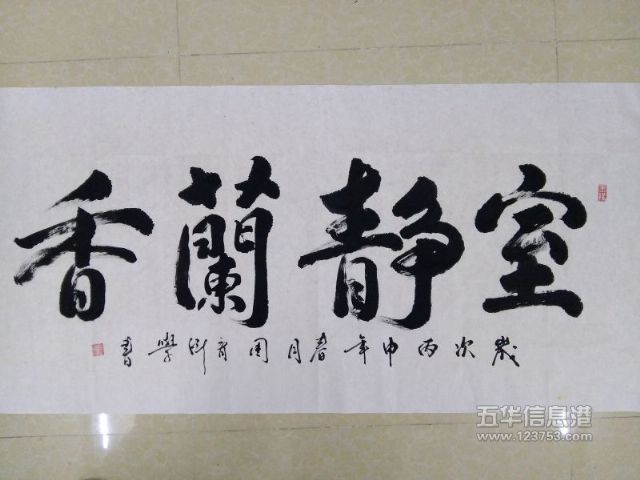 室靜蘭香
歲次丙申年春月周育彬學書
五华信息港
www.123753.com